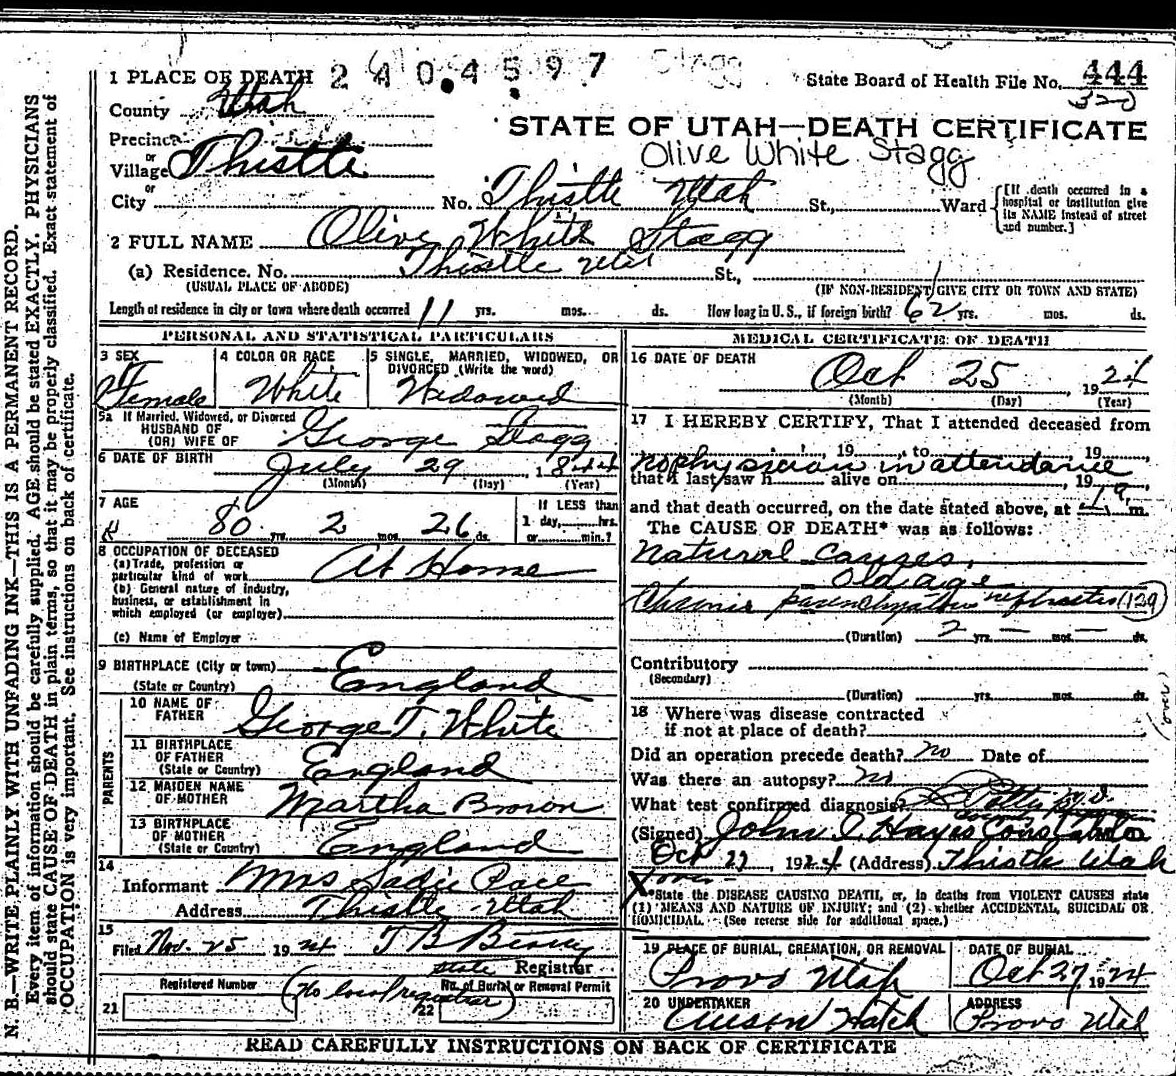 1 PLACE OF DEATH 2404597 Stagg
State Board of Health File No. 444
320
County Utah
STATE OF UTAH—DEATH CERTIFICATE
Precinct
or
Village Thistle
Olive White Stagg
or
City No. Thistle Utah St., Ward
[If death occurred in a hospital or institution give its NAME instead of street and number.]
2 FULL NAME Olive White Stagg
(a) Residence. No. Thistle Utah St.,
(USUAL PLACE OF ABODE) (IF NON-RESIDENT GIVE CITY OR TOWN AND STATE)
Length of residence in city or town where death occurred 11 yrs. mos. ds. How long in U. S., if foreign birth? 62 yrs. mos. ds.
PERSONAL AND STATISTICAL PARTICULARS
3 SEX Female
4 COLOR OR RACE White
5 SINGLE, MARRIED, WIDOWED, OR
DIVORCED (Write the word)
Widowed
5a If Married, Widowed, or Divorced
HUSBAND OF
(OR) WIFE OF George Stagg
6 DATE OF BIRTH July 29 1844
(Month) (Day) (Year)
7 AGE 80 yrs. 2 mos. 26 ds.
If LESS than
1 day, hrs.
or min.?
8 OCCUPATION OF DECEASED
(a) Trade, profession or
particular kind of work At Home
(b) General nature of industry,
business, or establishment in
which employed (or employer)
(c) Name of Employer
9 BIRTHPLACE (City or town)
(State or Country) England
PARENTS
10 NAME OF
FATHER George T. White
11 BIRTHPLACE
OF FATHER
(State or Country) England
12 MAIDEN NAME
OF MOTHER Martha Brown
13 BIRTHPLACE
OF MOTHER
(State or Country) England
14
Informant Mrs Sadie Pace
Address Thistle Utah
15
Filed Nov. 25 1924 T B Beatty
State Registrar
Registered Number (No local registrar) No. of Burial or Removal Permit
21 22
MEDICAL CERTIFICATE OF DEATH
16 DATE OF DEATH
Oct 25 1924
(Month) (Day) (Year)
17 I HEREBY CERTIFY, That I attended deceased from
, 19 , to , 19 ,
no physician in attendance
that I last saw h alive on , 19 ,
and that death occurred, on the date stated above, at m.
The CAUSE OF DEATH* was as follows:
Natural Causes,
old age
Chronic parenchymatous nephritis (129)
(Duration) 2 yrs. — mos. — ds.
Contributory
(Secondary)
(Duration) yrs. mos. ds.
18 Where was disease contracted
if not at place of death?
(over)
Did an operation precede death? no Date of
Was there an autopsy? no
What test confirmed diagnosis?
(Signed) John I Hayes Constable
Oct 27, 1924 (Address) Thistle Utah
X over
*State the DISEASE CAUSING DEATH, or, in deaths from VIOLENT CAUSES state
(1) MEANS AND NATURE OF INJURY; and (2) whether ACCIDENTAL, SUICIDAL OR
HOMICIDAL. (See reverse side for additional space.)
19 PLACE OF BURIAL, CREMATION, OR REMOVAL
Provo Utah
DATE OF BURIAL
Oct 27, 1924
20 UNDERTAKER
Hatch
ADDRESS
Provo Utah
READ CAREFULLY INSTRUCTIONS ON BACK OF CERTIFICATE
N. B.—WRITE PLAINLY WITH UNFADING INK—THIS IS A PERMANENT RECORD.
Every item of information should be carefully supplied. AGE should be stated EXACTLY. PHYSICIANS
should state CAUSE OF DEATH in plain terms, so that it may be properly classified. Exact statement of
OCCUPATION is very important. See instructions on back of certificate.